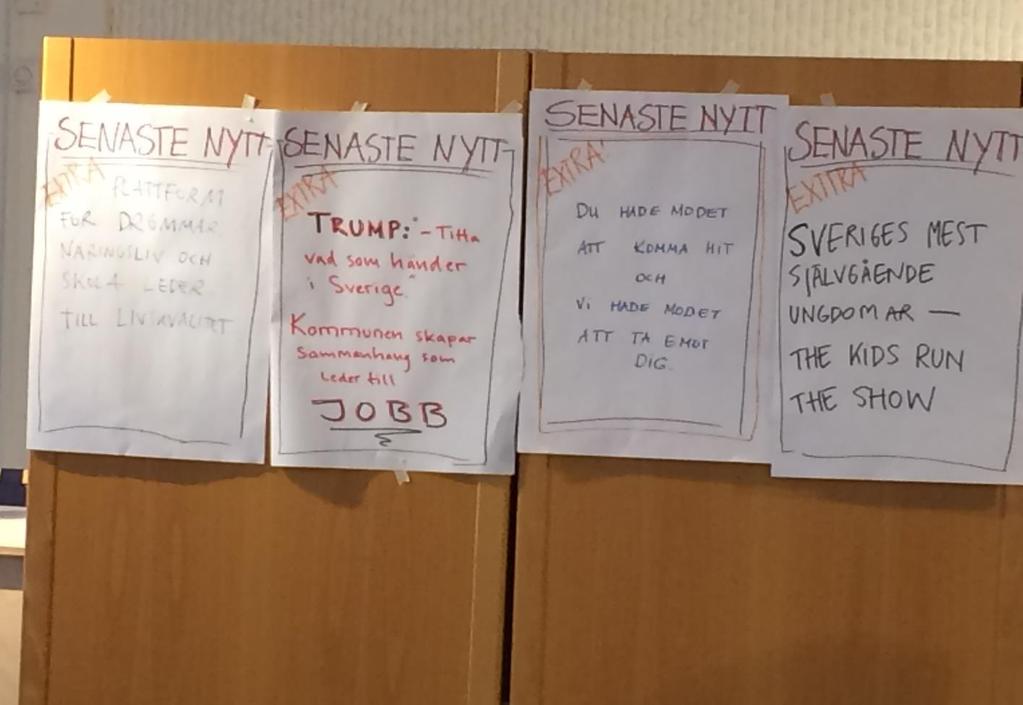 SENASTE NYTT
EXTRA
PLATTFORM
FÖR DRÖMMAR
NÄRINGSLIV OCH
SKOLA LEDER
TILL LIVSKVALITET
SENASTE NYTT
EXTRA
TRUMP: "-Titta
vad som händer
i Sverige"
Kommunen skapar
Sammanhang som
Leder till
JOBB
SENASTE NYTT
EXTRA!
DU HADE MODET
ATT KOMMA HIT
OCH
VI HADE MODET
ATT TA EMOT
DIG.
SENASTE NYTT
EXTTRA
SVERIGES MEST
SJÄLVGÅENDE
UNGDOMAR —
THE KIDS RUN
THE SHOW